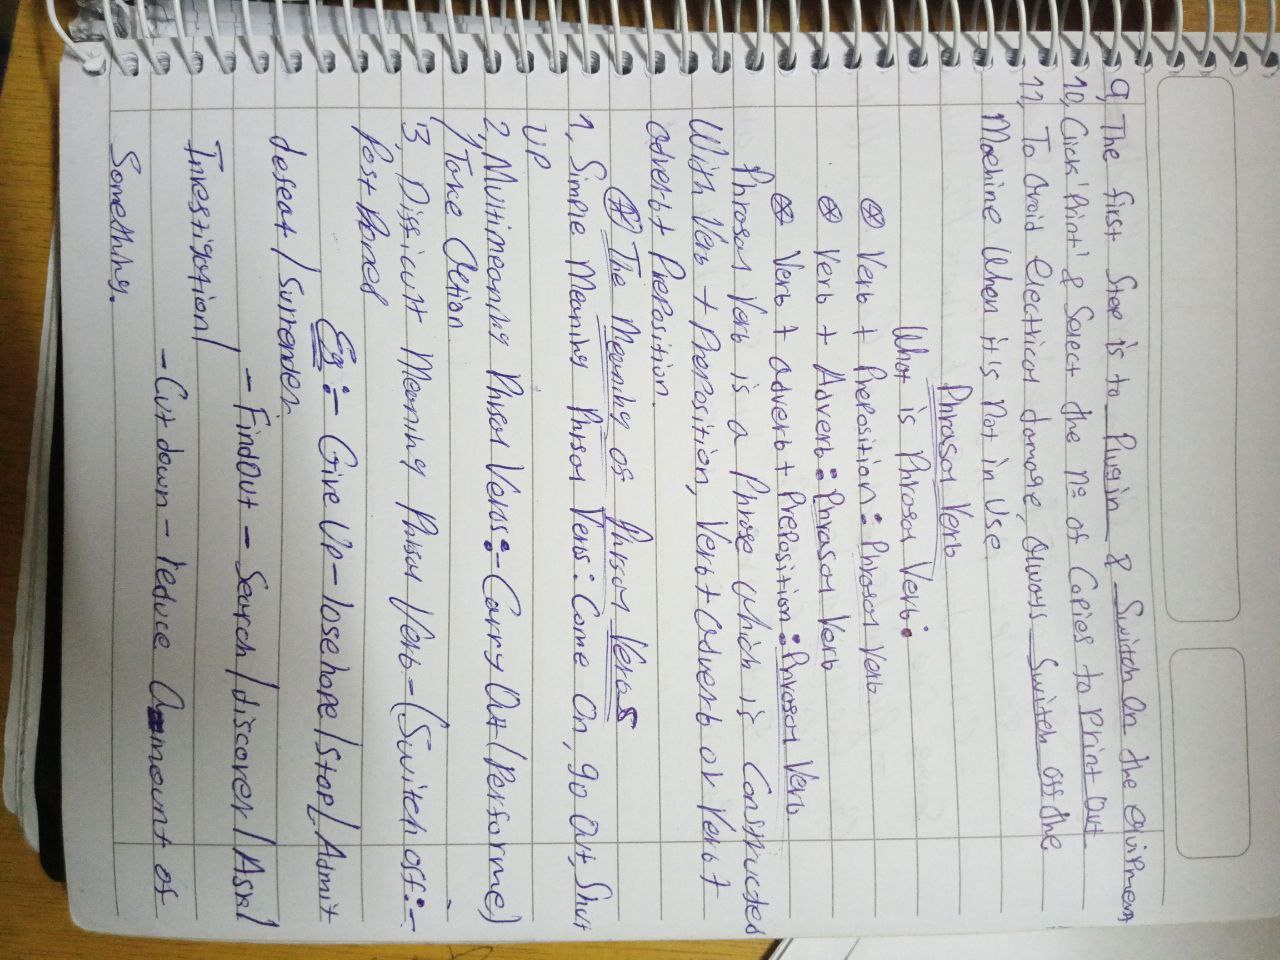 9, The first Step is to Plugin & Switch On the equipment
10, Click 'Print' & Select the nº of Copies to Print Out
11, To avoid electrical damage, always Switch off the
Machine When it is Not in Use.
Phrasal Verb
What is Phrasal Verb:
⊛ Verb + Preposition: Phrasal Verb
⊛ Verb + Adverb: Phrasal Verb
⊛ Verb + adverb + Preposition: Phrasal Verb
Phrasal Verb is a Phrase which is Constructed
With Verb + Preposition, Verb + adverb or Verb +
adverb + Preposition.
⊛ The Meaning of Phrsal Verbs
1, Simple Meaning Phrsal Verbs: Come On, go Out, Shut
UP
2, Multimeaning Phrsal Verbs:- Carry Out (Performe)
/Take action
3, Difficult Meaning Phrsal Verb - (Switch off:-
Post Poned
Eg:- Give Up - lose hope / Stop / Admit
defeat / Surrender
- Find Out - Search / discover / Ask /
Investigation /
- Cut down - reduce Amount of
Something.